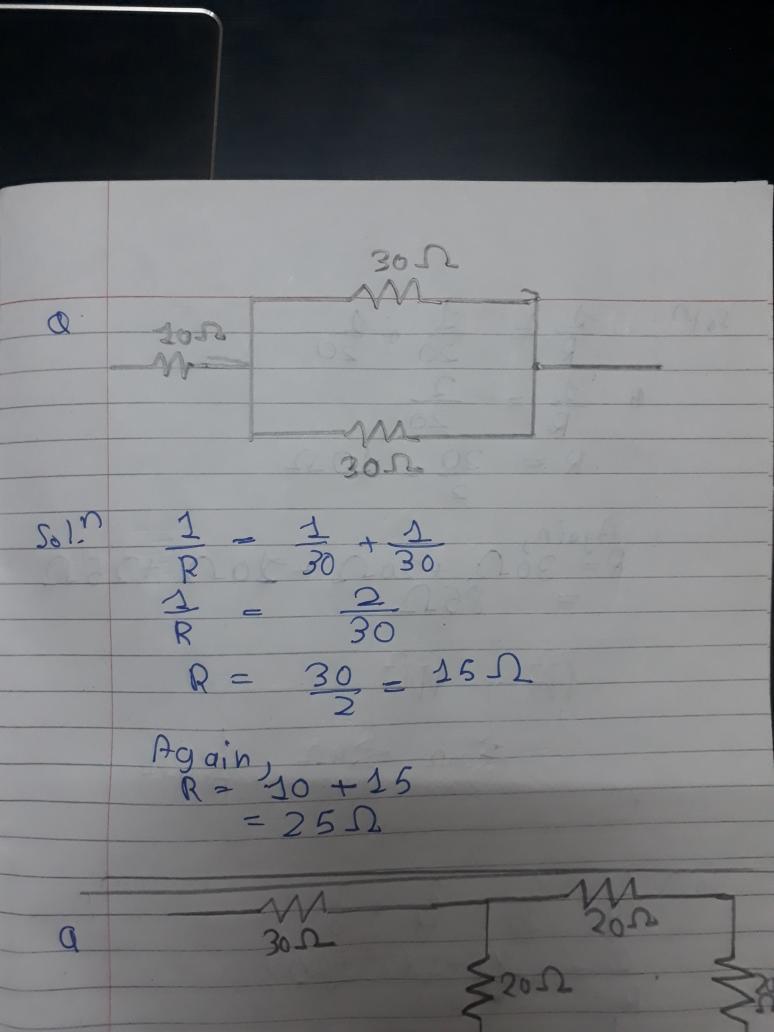 30Ω
Q
10Ω
30Ω
Sol.ⁿ
1/R = 1/30 + 1/30
1/R = 2/30
R = 30/2 = 15Ω
Again,
R = 10 + 15
= 25Ω
Q
30Ω
20Ω
20Ω